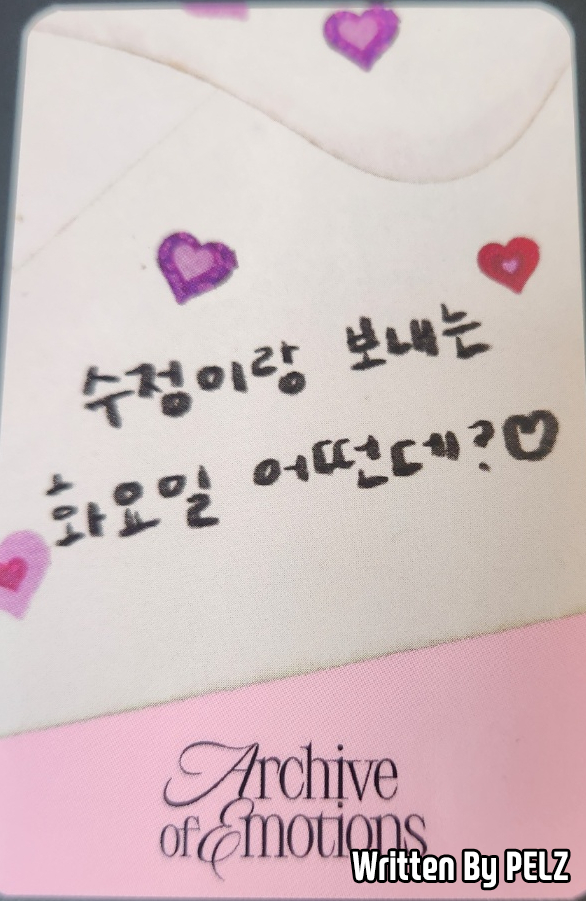 수정이랑 보내는
화요일 어떤데?♡
Archive
of Emotions
Written By PELZ